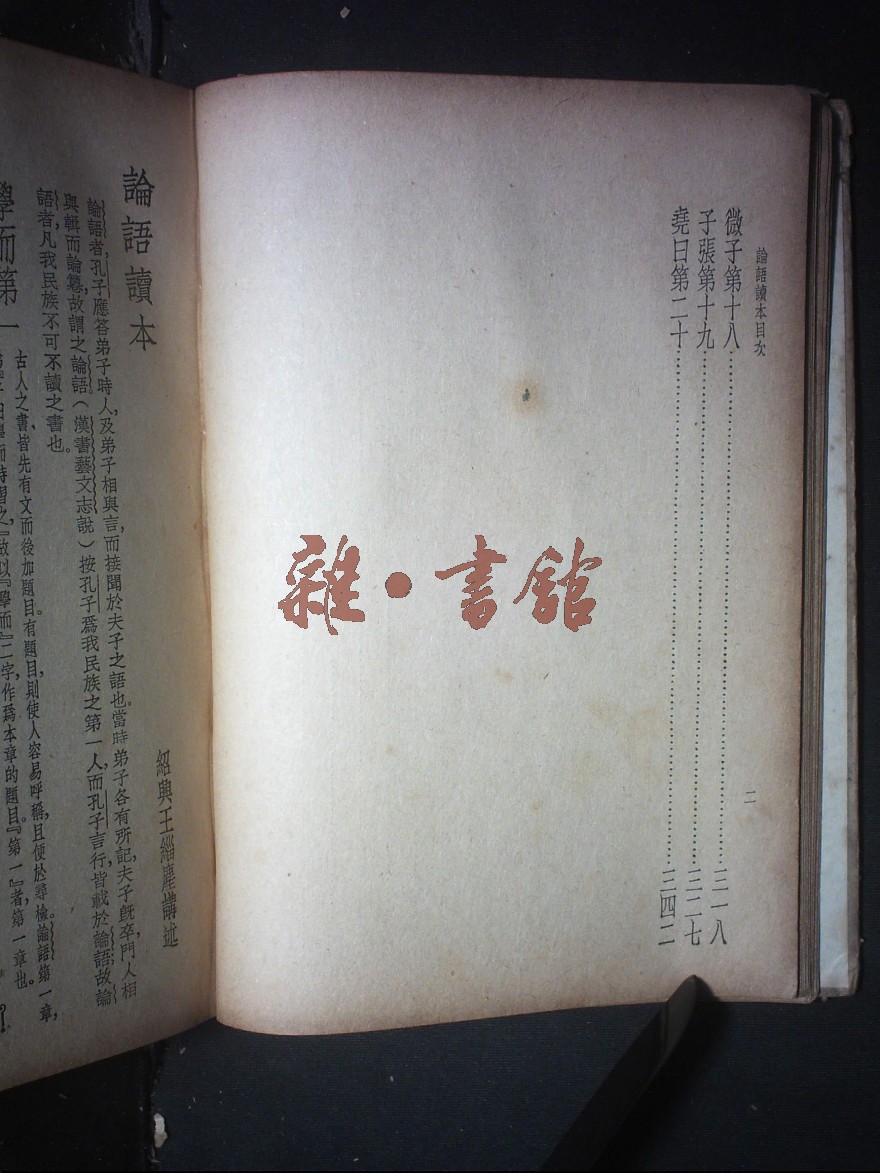 論語讀本目次
二
微子第十八……三一八
子張第十九……三二七
堯曰第二十……三四二
雜·書館
論語讀本
紹興王緇塵講述
論語者,孔子應答弟子時人,及弟子相與言而接聞於夫子之語也。當時弟子各有所記,夫子旣卒,門人相
與輯而論篹,故謂之論語。(漢書藝文志說)按孔子爲我民族之第一人,而孔子言行,皆載於論語,故論
語者,凡我民族不可不讀之書也。
學而第一
古人之書,皆先有文而後加題目。有題目,則使人容易呼稱,且便於尋檢。論語第一章,
而時習之,』故以『學而』二字,作爲本章的題目。『第一』者,第一章也。